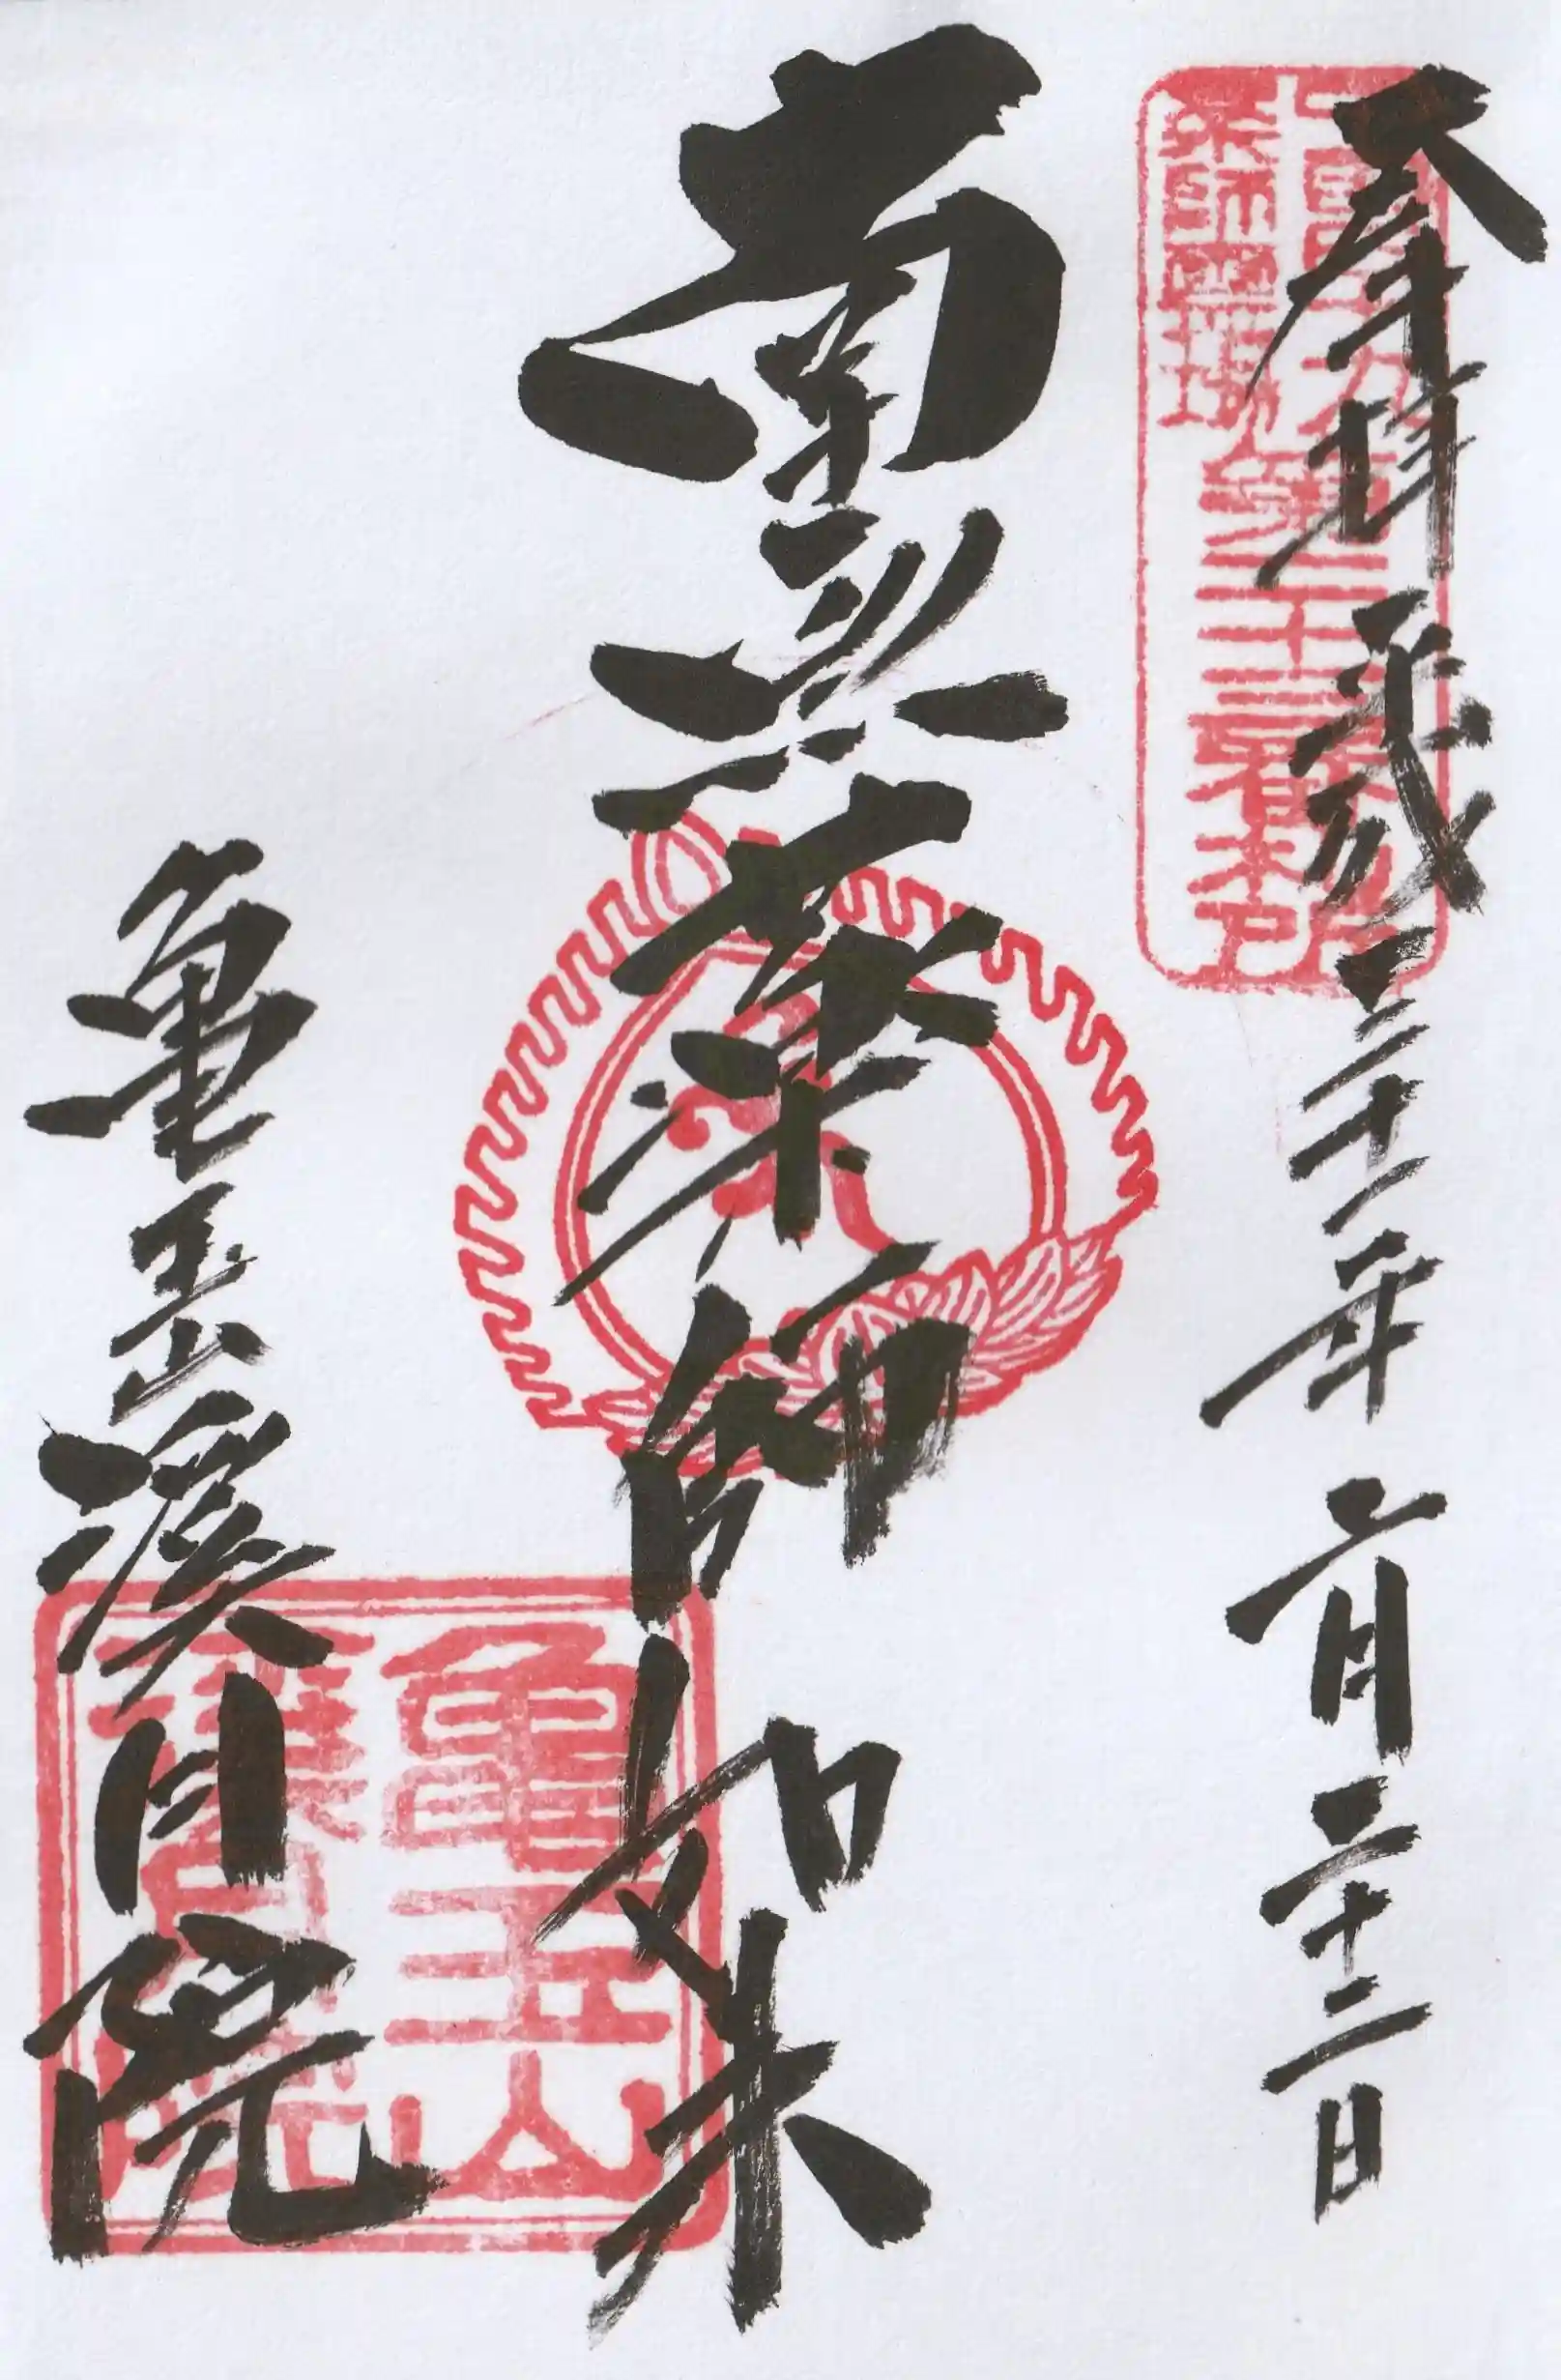 奉拝 平成三十一年 二月二十三日
薬師霊場
第二十三番札所
南無薬師如来
亀玉山
院
亀玉山